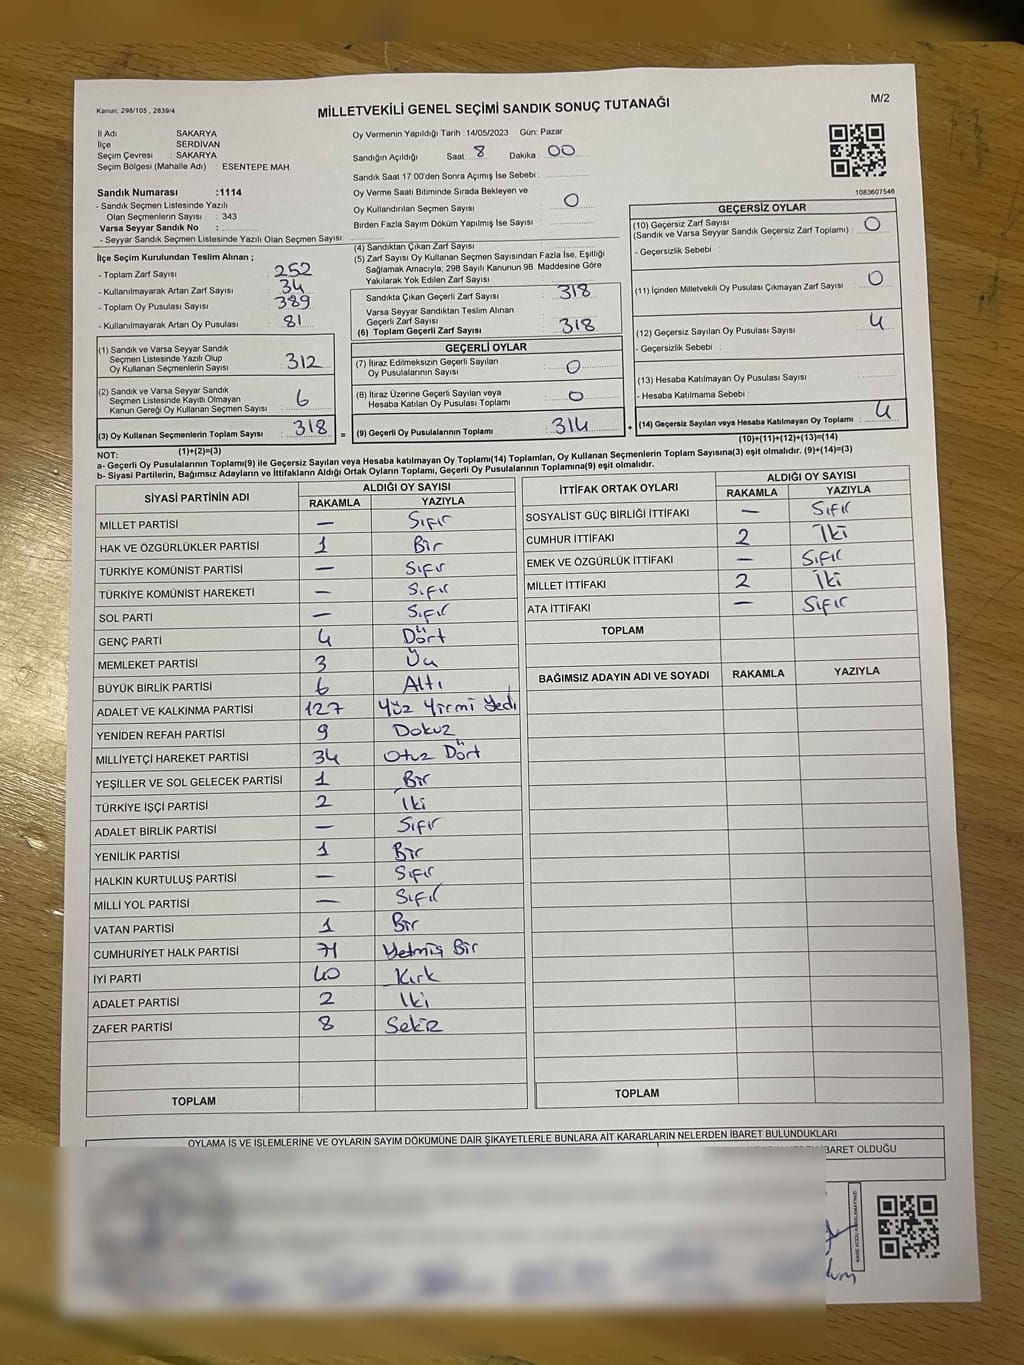 Kanun, 298/105 , 2839/4
MİLLETVEKİLİ GENEL SEÇİMİ SANDIK SONUÇ TUTANAĞI
M/2
İl Adı SAKARYA
İlçe SERDİVAN
Seçim Çevresi : SAKARYA
Seçim Bölgesi (Mahalle Adı) : ESENTEPE MAH.
Sandık Numarası :1114
- Sandık Seçmen Listesinde Yazılı
Olan Seçmenlerin Sayısı : 343
Varsa Seyyar Sandık No :
- Seyyar Sandık Seçmen Listesinde Yazılı Olan Seçmen Sayısı:
İlçe Seçim Kurulundan Teslim Alınan ;
- Toplam Zarf Sayısı : 252
- Kullanılmayarak Artan Zarf Sayısı : 34
- Toplam Oy Pusulası Sayısı : 389
- Kullanılmayarak Artan Oy Pusulası : 81
(1) Sandık ve Varsa Seyyar Sandık
Seçmen Listesinde Yazılı Olup
Oy Kullanan Seçmenlerin Sayısı : 312
(2) Sandık ve Varsa Seyyar Sandık
Seçmen Listesinde Kayıtlı Olmayan
Kanun Gereği Oy Kullanan Seçmen Sayısı : 6
(3) Oy Kullanan Seçmenlerin Toplam Sayısı : 318
(1)+(2)=(3)
Oy Vermenin Yapıldığı Tarih :14/05/2023 Gün: Pazar
Sandığın Açıldığı Saat: 8 Dakika : 00
Sandık Saat 17:00'den Sonra Açılmış İse Sebebi :
Oy Verme Saati Bitiminde Sırada Bekleyen ve
Oy Kullandırılan Seçmen Sayısı : 0
Birden Fazla Sayım Döküm Yapılmış İse Sayısı :
(4) Sandıktan Çıkan Zarf Sayısı :
(5) Zarf Sayısı Oy Kullanan Seçmen Sayısından Fazla İse, Eşitliği
Sağlamak Amacıyla; 298 Sayılı Kanunun 98. Maddesine Göre
Yakılarak Yok Edilen Zarf Sayısı :
Sandıkta Çıkan Geçerli Zarf Sayısı : 318
Varsa Seyyar Sandıktan Teslim Alınan
Geçerli Zarf Sayısı
(6) Toplam Geçerli Zarf Sayısı : 318
GEÇERLİ OYLAR
(7) İtiraz Edilmeksizin Geçerli Sayılan
Oy Pusulalarının Sayısı : 0
(8) İtiraz Üzerine Geçerli Sayılan veya
Hesaba Katılan Oy Pusulası Toplamı : 0
= (9) Geçerli Oy Pusulalarının Toplamı : 314
1083607546
GEÇERSİZ OYLAR
(10) Geçersiz Zarf Sayısı
(Sandık ve Varsa Seyyar Sandık Geçersiz Zarf Toplamı) : 0
- Geçersizlik Sebebi :
(11) İçinden Milletvekili Oy Pusulası Çıkmayan Zarf Sayısı : 0
(12) Geçersiz Sayılan Oy Pusulası Sayısı : 4
- Geçersizlik Sebebi :
(13) Hesaba Katılmayan Oy Pusulası Sayısı :
- Hesaba Katılmama Sebebi :
+ (14) Geçersiz Sayılan veya Hesaba Katılmayan Oy Toplamı : 4
(10)+(11)+(12)+(13)=(14)
NOT:
a- Geçerli Oy Pusulalarının Toplamı(9) ile Geçersiz Sayılan veya Hesaba katılmayan Oy Toplamı(14) Toplamları, Oy Kullanan Seçmenlerin Toplam Sayısına(3) eşit olmalıdır. (9)+(14)=(3)
b- Siyasi Partilerin, Bağımsız Adayların ve İttifakların Aldığı Ortak Oyların Toplamı, Geçerli Oy Pusulalarının Toplamına(9) eşit olmalıdır.
SİYASİ PARTİNİN ADI ALDIĞI OY SAYISI
RAKAMLA YAZIYLA
MİLLET PARTİSİ — Sıfır
HAK VE ÖZGÜRLÜKLER PARTİSİ 1 Bir
TÜRKİYE KOMÜNİST PARTİSİ — Sıfır
TÜRKİYE KOMÜNİST HAREKETİ — Sıfır
SOL PARTİ — Sıfır
GENÇ PARTİ 4 Dört
MEMLEKET PARTİSİ 3 Üç
BÜYÜK BİRLİK PARTİSİ 6 Altı
ADALET VE KALKINMA PARTİSİ 127 Yüz Yirmi Yedi
YENİDEN REFAH PARTİSİ 9 Dokuz
MİLLİYETÇİ HAREKET PARTİSİ 34 Otuz Dört
YEŞİLLER VE SOL GELECEK PARTİSİ 1 Bir
TÜRKİYE İŞÇİ PARTİSİ 2 İki
ADALET BİRLİK PARTİSİ — Sıfır
YENİLİK PARTİSİ 1 Bir
HALKIN KURTULUŞ PARTİSİ — Sıfır
MİLLİ YOL PARTİSİ — Sıfır
VATAN PARTİSİ 1 Bir
CUMHURİYET HALK PARTİSİ 71 Yetmiş Bir
İYİ PARTİ 40 Kırk
ADALET PARTİSİ 2 İki
ZAFER PARTİSİ 8 Sekiz
TOPLAM
İTTİFAK ORTAK OYLARI ALDIĞI OY SAYISI
RAKAMLA YAZIYLA
SOSYALİST GÜÇ BİRLİĞİ İTTİFAKI — Sıfır
CUMHUR İTTİFAKI 2 İki
EMEK VE ÖZGÜRLÜK İTTİFAKI — Sıfır
MİLLET İTTİFAKI 2 İki
ATA İTTİFAKI — Sıfır
TOPLAM
BAĞIMSIZ ADAYIN ADI VE SOYADI RAKAMLA YAZIYLA
TOPLAM
OYLAMA İŞ VE İŞLEMLERİNE VE OYLARIN SAYIM DÖKÜMÜNE DAİR ŞİKAYETLERLE BUNLARA AİT KARARLARIN NELERDEN İBARET BULUNDUKLARI
İBARET OLDUĞU